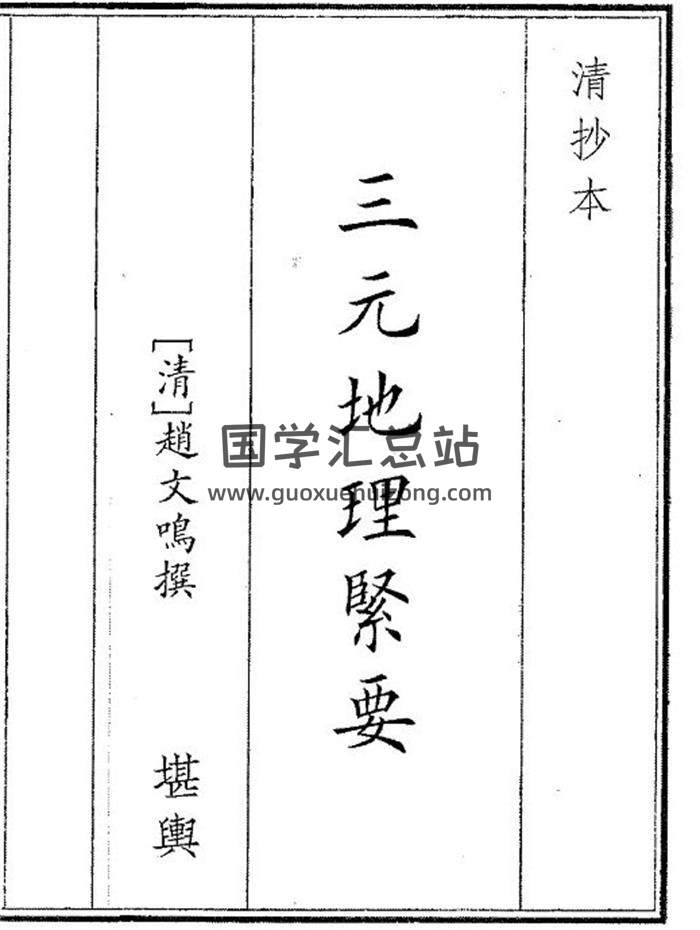 清抄本
三元地理緊要
[清]趙文鳴撰
堪輿
国学汇总站
www.guoxuehuizong.com